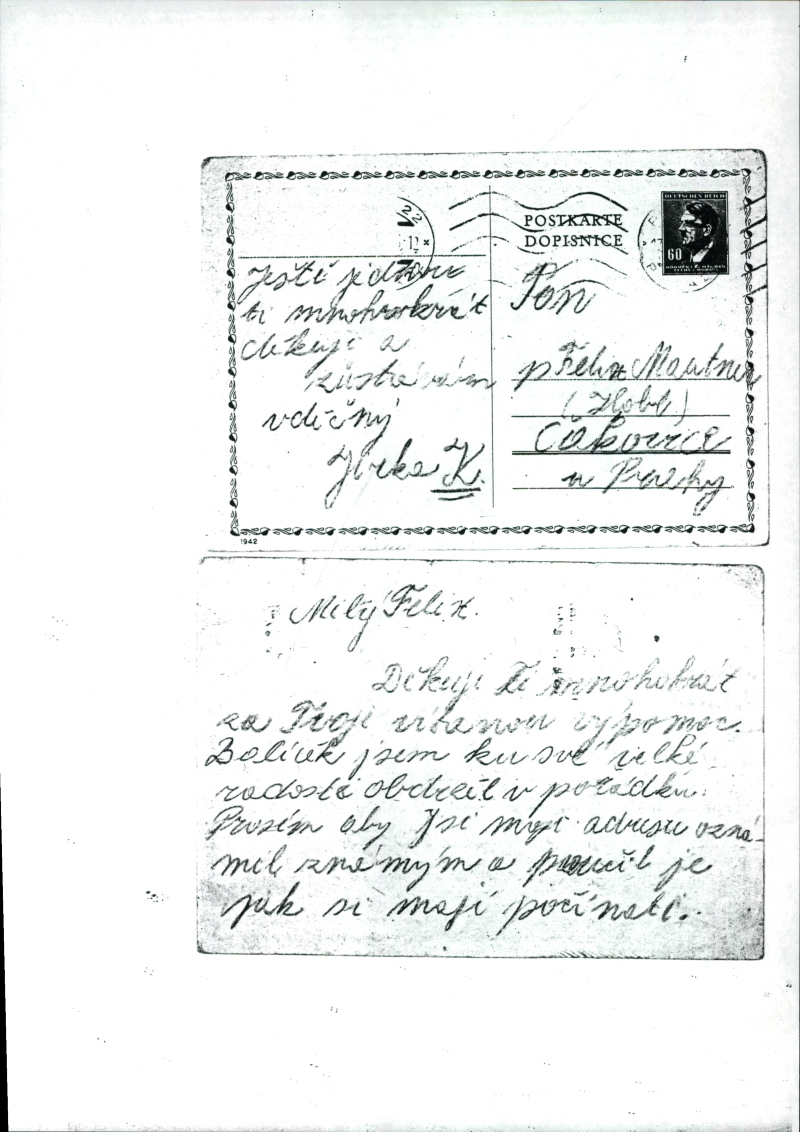 POSTKARTE
DOPISNICE
DEUTSCHES REICH
60
Ještě jednou
ti mnohokrát
děkuji a
zůstávám
vděčný
Jirka K.
Pan
p Felix Mautner
Čakovice
u Prahy
1942
Milý Felix.
Děkuji Ti mnohokrát
za Tvoji výpomoc.
Balíček jsem ku své velké
radosti obdržel v pořádku.
Prosím aby Jsi moji adresu ozná-
mil známým a poučil je
jak si mají počínati.